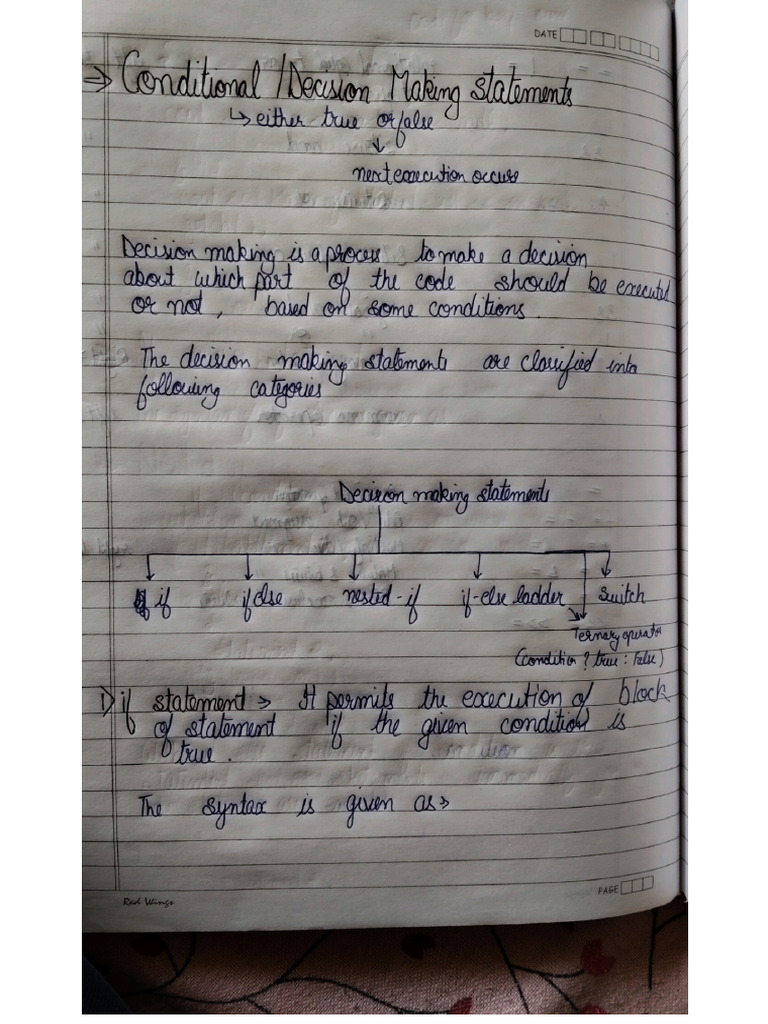 DATE
⇒ Conditional / Decision Making statements
↳ either true or false
↓
next execution occurs
Decision making is a process to make a decision
about which part of the code should be executed
or not, based on some conditions.
The decision making statements are classified into
following categories
Decision making statements
if if else nested-if if-else ladder switch
Ternary operator
(condition ? true : false)
1) if statement ⇒ It permits the execution of block
of statement if the given condition is
true.
The syntax is given as ⇒
PAGE
Red Wings